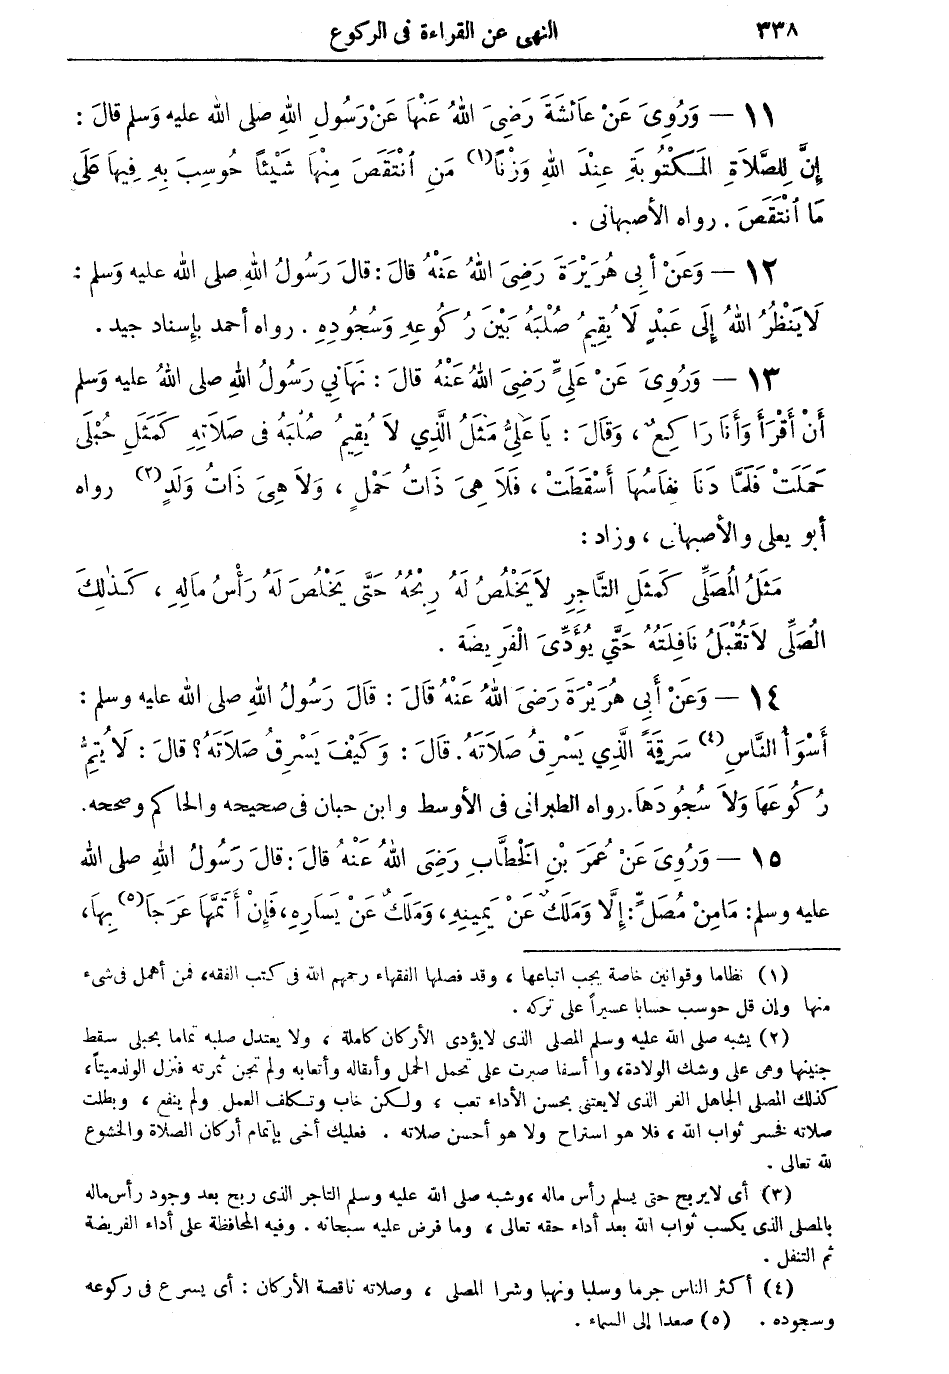 ٣٣٨ النهى عن القراءة فى الركوع
١١ — وَرُوِىَ عَنْ عَائشَةَ رَضِىَ اللهُ عَنْهَا عَنْ رَسُولِ اللهِ صلى الله عليه وَسلم قالَ :
إِنَّ لِلصَّلَاةِ المَكْتُوبَةِ عِنْدَ اللهِ وَزْنًا(١) مَنِ ٱنْتَقَصَ مِنْهَا شَيْئًا حُوسِبَ بِهِ فِيهَا عَلَى
مَا ٱنْتَقَصَ . رواه الأصبهانى .
١٢ — وَعَنْ أبِى هُرَيْرَةَ رَضِىَ اللهُ عَنْهُ قالَ : قالَ رَسُولُ اللهِ صلى الله عليه وَسلم :
لَا يَنْظُرُ اللهُ إِلَى عَبْدٍ لَا يُقِيمُ صُلْبَهُ بَيْنَ رُكُوعِهِ وَسُجُودِهِ . رواه أحمد بإسناد جيد .
١٣ — وَرُوِىَ عَنْ عَلِىٍّ رَضِىَ اللهُ عَنْهُ قالَ : نَهَانِي رَسُولُ اللهِ صلى اللهُ عليه وَسلم
أَنْ أَقْرَأَ وَأَنَا رَاكِعٌ ، وَقَالَ : يَا عَلِىُّ مَثَلُ الَّذِي لاَ يُقِيمُ صُلْبَهُ فِى صَلاَتِهِ كَمَثَلِ حُبْلَى
حَمَلَتْ فَلَمَّا دَنَا نِفَاسُهَا أَسْقَطَتْ ، فَلاَ هِىَ ذَاتُ حَمْلٍ ، وَلاَ هِىَ ذَاتُ وَلَدٍ(٢) رواه
أبو يعلى والأصبهانى ، وزاد :
مَثَلُ المُصَلِّى كَمَثَلِ التَّاجِرِ لاَ يَخْلُصُ لَهُ رِبْحُهُ حَتَّى يَخْلُصَ لَهُ رَأْسُ مالِهِ ، كَذٰلِكَ
المُصَلِّى لاَ تُقْبَلُ نَافِلَتُهُ حَتَّى يُؤَدِّىَ الْفَرِيضَةَ .
١٤ — وَعَنْ أَبِي هُرَيْرَةَ رَضِىَ اللهُ عَنْهُ قَالَ : قَالَ رَسُولُ اللهِ صلى الله عليه وسلم :
أَسْوَأُ النَّاسِ(٤) سَرِقَةً الَّذِي يَسْرِقُ صَلاَتَهُ . قَالَ : وَكَيْفَ يَسْرِقُ صَلاَتَهُ ؟ قالَ : لَا يُتِمُّ
رُكُوعَهَا وَلاَ سُجُودَهَا . رواه الطبرانى فى الأوسط وابن حبان فى صحيحه والحاكم وصححه .
١٥ — وَرُوِىَ عَنْ عُمَرَ بْنِ الخَطَّابِ رَضِىَ اللهُ عَنْهُ قالَ : قالَ رَسُولُ اللهِ صلى الله
عليه وسلم : مَا مِنْ مُصَلٍّ : إِلَّا وَمَلَكٌ عَنْ يَمِينِهِ ، وَمَلَكٌ عَنْ يَسَارِهِ ، فَإِنْ أَتَمَّهَا عَرَجَا(٥) بِهَا ،
(١) نظاما وقوانين خاصة يجب اتباعها ، وقد فصلها الفقهاء رحمهم الله فى كتب الفقه ، فمن أهمل فى شىء
منها وإن قل حوسب حسابا عسيراً على تركه .
(٢) يشبه صلى الله عليه وسلم المصلى الذى لايؤدى الأركان كاملة ، ولا يعتدل صلبه تماما بحبلى سقط
جنينها وهى على وشك الولادة ، وا أسفا صبرت على تحمل الحمل وأثقاله وأتعابه ولم تجن ثمرته فنزل الولدميتاً ،
كذلك المصلى الجاهل الغر الذى لايعتنى بحسن الأداء تعب ، ولكن خاب وتكلف العمل ولم ينفع ، وبطلت
صلاته فخسر ثواب الله ، فلا هو استراح ولا هو أحسن صلاته . فعليك أخى بإتمام أركان الصلاة والخشوع
لله تعالى .
(٣) أى لايربح حتى يسلم رأس ماله ، وشبه صلى الله عليه وسلم التاجر الذى ربح بعد وجود رأس ماله
بالمصلى الذى يكسب ثواب الله بعد أداء حقه تعالى ، وما فرض عليه سبحانه . وفيه المحافظة على أداء الفريضة
ثم التنفل .
(٤) أكثر الناس جرما وسلبا ونهبا وشرا المصلى ، وصلاته ناقصة الأركان : أى يسرع فى ركوعه
وسجوده . (٥) صعدا إلى السماء .